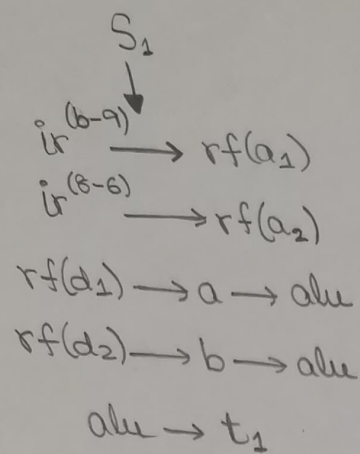 S₁
↓
ir⁽⁶⁻⁹⁾ → rf(a₁)
ir⁽⁸⁻⁶⁾ → rf(a₂)
rf(d₁) → a → alu
rf(d₂) → b → alu
alu → t₁